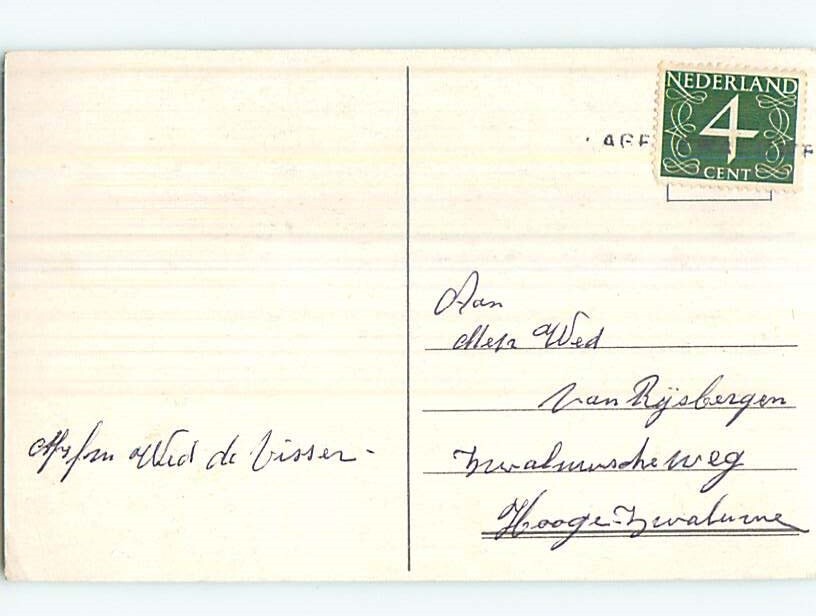 NEDERLAND
4
CENT
LAGE
Aan
Mej Wed
van Rijsbergen
Zwaluwscheweg
Hooge-Zwaluwe
Wed de Visser-